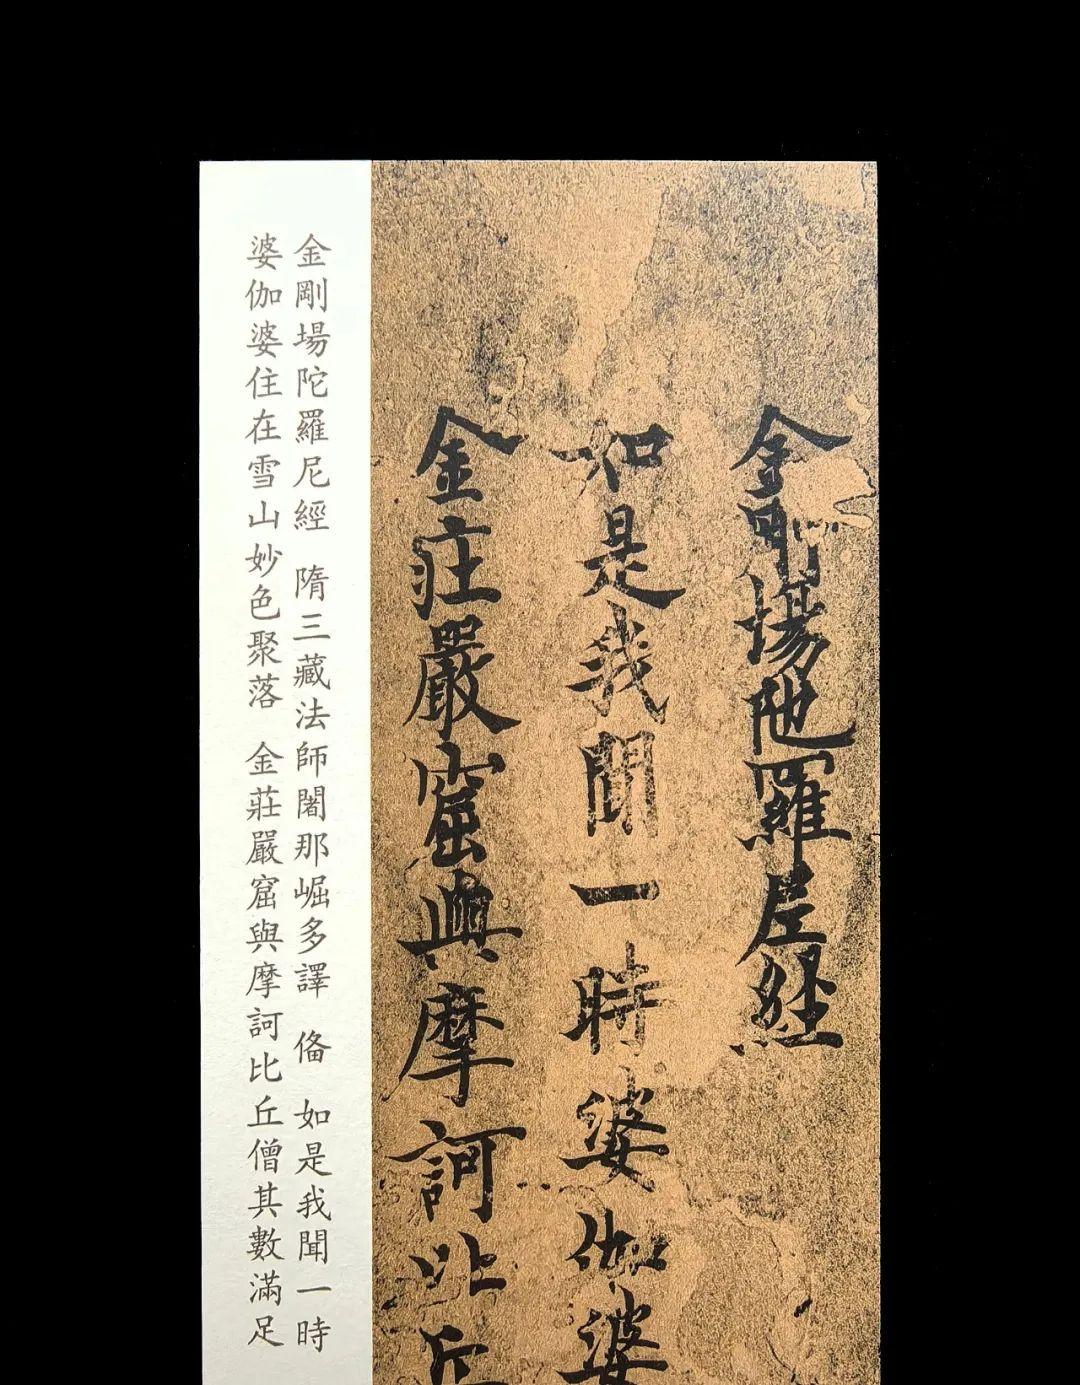 金剛場陀羅尼經
如是我聞一時婆伽婆
金莊嚴窟與摩訶比丘
金剛場陀羅尼經 隋三藏法師闍那崛多譯 俻 如是我聞一時
婆伽婆住在雪山妙色聚落 金莊嚴窟與摩訶比丘僧其數滿足